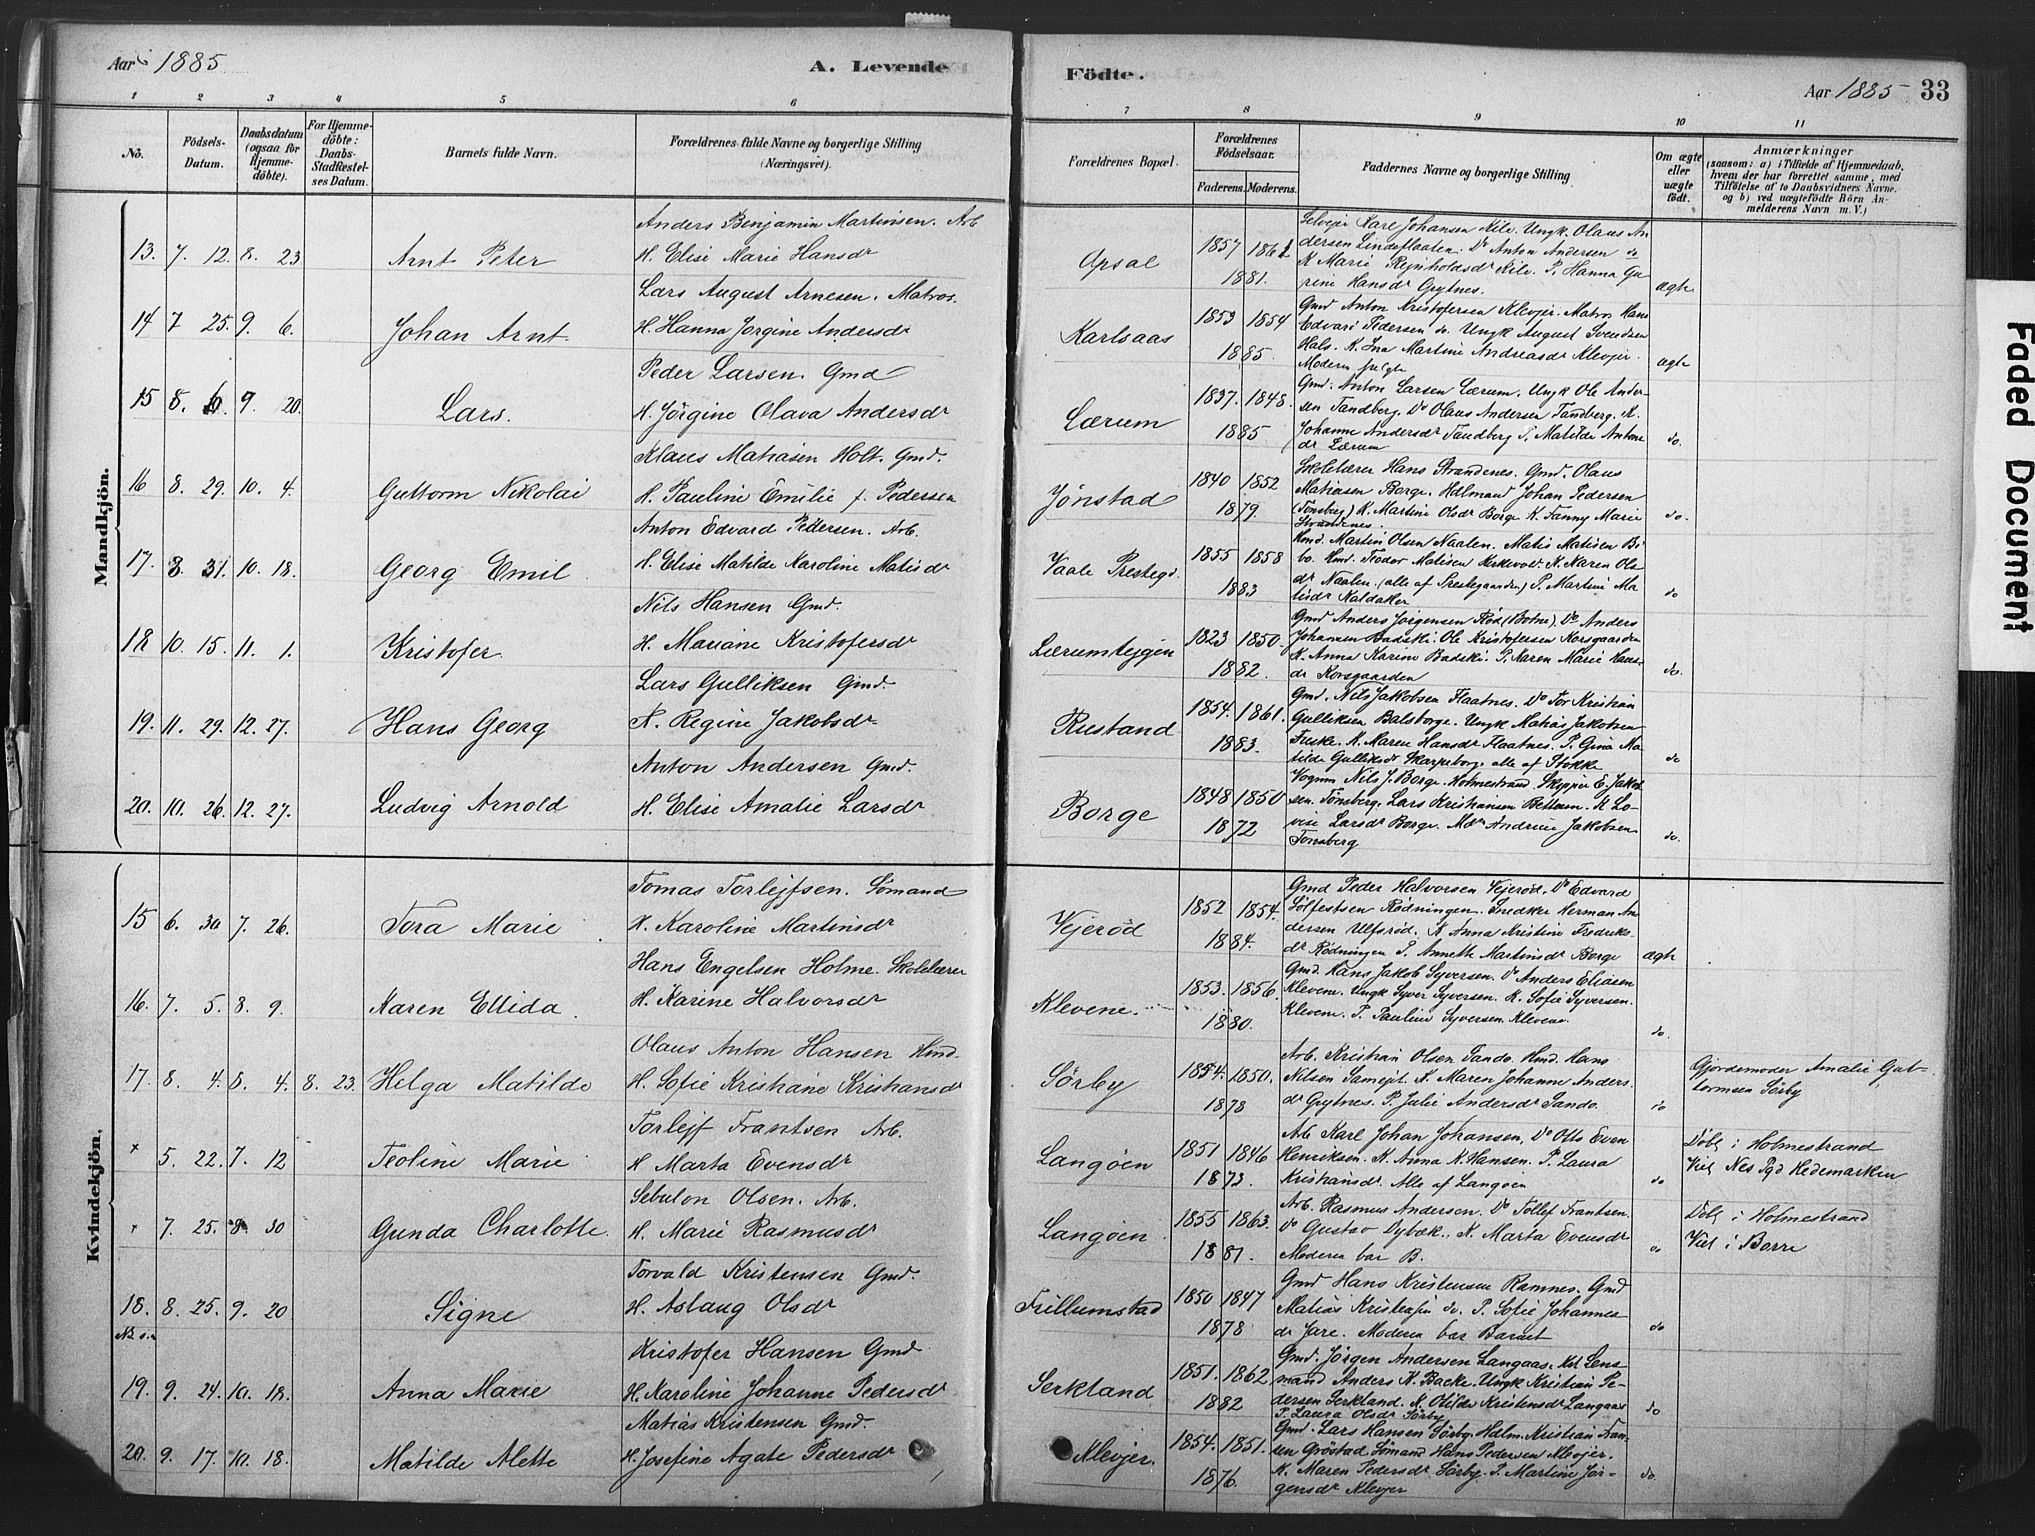 Aar 1885
A. Levende
Födte.
Aar 1885
33
1 2 3 4 5 6
7 8 9 10 11
No.
Födsels-
Datum.
Daabsdatum
(ogsaa for
Hjemme-
döbte).
For Hjemme-
döbte:
Daabs-
Stadfæstel-
ses Datum.
Barnets fulde Navn.
Forældrenes fulde Navne og borgerlige Stilling
(Næringsvei).
Forældrenes Bopæl.
Forældrenes
Födselsaar.
Faderens. Moderens.
Faddernes Navne og borgerlige Stilling
Om ægte
eller
uægte
født.
Anmærkninger
(saasom: a) i Tilfælde af Hjemmedaab,
hvem der har forrettet samme, med
Tilföielse af to Daabsvidners Navne.
og b) ved uægtefödte Börn An-
melderens Navn m. V.)
Mandkjön.
13. 7. 12. 8. 23
Arnt Peter
Anders Benjamin Martinsen. Arb
H. Elise Marie Hansdr
Opsal
1857 1861
1881.
Selvejer Karl Johansen Kile. Ungk. Olaus An
dersen Lindeflaaten. Do Anton Andersen do
K Marie Rejnholdsdr Kile. P. Hanna Gu
rene Hansdr Grytnes.
ægte
14 7 25. 9. 6.
Johan Arnt.
Lars August Arnesen. Matros.
H. Hanna Jorgine Andersdr
Karlsaas
1853 1854
1885.
Gmd Anton Kristofersen Klevjer. Matros Hans
Edvard Pedersen do. Ungk August Svendsen
Hals. K. Ina Martine Andreasdr Klevjer.
Moderen
ægte
15 8. 10. 9. 20.
Lars.
Peder Larsen. Gmd
H. Jörgine Olava Andersdr
Lærum
1837. 1848.
1885
Gmd. Anton Larsen Lærum. Ungk Ole Ander-
sen Tandberg. Do Olaus Andersen Tandberg. K.
Johanne Andersdr Tandberg P. Matilde Antons
dr Lærum
do.
16 8. 29. 10. 4.
Guttorm Nikolai
Klaus Matiasen Holt. Gmd.
H. Pauline Emilie f. Pedersen
Jønstad
1840 1852
1879.
Skolelærer Hans Strandenes. Gmd. Olaus
Matiasen Borge. Hdlmand Johan Pedersen
(Tönsberg) K. Martine Olsdr Borge K. Fanny Marie
Strandenes.
do.
17 8. 31. 10. 18.
Georg Emil
Anton Edvard Pedersen. Arb.
H. Elise Matilde Karoline Matisdr
Vaale Prestegd.
1855 1858
1883
Hmd. Martin Olsen Naalen. Matis Matisen Bi
bo. Hmd. Teodor Matisen Kirkevold. K. Karen Ole
dr Naalen. (alle af Prestegaarden) P. Martine Ma
tisdr Kaldaker
do
18 10. 15. 11. 1.
Kristofer.
Nils Hansen Gmd.
H. Mariane Kristofersdr
Lærumtejgen
1823 1850.
1882.
Gmd Anders Jorgensen Rød (Botne) Do Anders
Johansen Badski. Ole Kristofersen Korsgaarden
K. Anna Karine Badski. P. Karen Marie Hans-
dr Korsgaarden
do.
19. 11. 29. 12. 27.
Hans Georg
Lars Gulliksen Gmd.
H. Regine Jakobsdr
Rustand
1854. 1861.
1883.
Gmd. Nils Jakobsen Flaatnes. Do Tor Kristian
Gulliksen Balsborge. Ungk Matias Jakobsen
Freske. K. Maren Hansdr Flaatnes. P. Gina Ma
tilde Gulliksdr Skarpeborg. alle af Stokke
do
20. 10. 26. 12. 27.
Ludvig Arnold
Anton Andersen Gmd.
H. Elise Amalie Larsdr
Borge
1848 1850
1872
Nils J. Borge. Holmestrand Skipper E. Jakob
sen. Tönsberg. Lars Kristiansen Bettum. K Lo-
vise Larsdr Borge. Mdr Andrine Jakobsen
Tonsberg
do.
Kvindekjön.
15 6. 30 7. 26.
Tora Marie
Tomas Torlejfsen. Sømand
H. Karoline Martinsdr
Vejerød
1852 1854.
1884.
Gmd Peder Halvorsen Vejerød. Do Edvard
Sölfestsen Rødningen. Snedker Herman An
dersen Ulfsrød. K Anna Kristine Fredriks-
dr Rødningen P. Annette Martinsdr Borge
ægte
16. 7. 5. 8. 9.
Karen Ellida.
Hans Engelsen Holme. Skolelærer
H. Karine Halvorsdr
Klevene.
1853. 1856.
1880.
Gmd. Hans Jakob Syversen. Do Anders Eliasen
Klevene. Ungk Syver Syversen. K. Sofie Syversen.
Klevene. P. Pauline Syversen Klevene.
do
17. 8. 4. 8. 4. 8. 23.
Helga Matilde
Olaus Anton Hansen Hmd.
H. Sofie Kristiane Kristiansdr
Sörby
1854. 1850.
1878
Arb. Kristian Olsen Sando. Hmd. Hans
Nilsen Samejet. K. Maren Johanne Anders
dr Grytnes. P. Julie Andersdr Sando.
do
Gjordemoder Amalie Gut-
tormsen Sörby
× 5. 22. 7. 12
Teoline Marie
Torlejf Frantsen Arb.
H Marta Evensdr
Langøen
1851 1846
1873.
Arb Karl Johan Johansen, Do Otto Even
Henriksen. K. Anna K. Hansen. P. Laura
Kristiansdr. Alle af Langøen
do
Døbt i Holmestrand
Viet Nes Pgd Hedemarken
× 7. 25. 8 30
Gunda Charlotte.
Sebulon Olsen. Arb.
H. Marie Rasmusdr
Langøen
1855 1863.
1881.
Arb. Rasmus Andersen. Do Tollef Frantsen.
Do Gustav Dybæk. K. Marta Evensdr
Moderen bar B.
do
Døbt i Holmestrand
Viet i Borre
18. 8. 25. 9. 20
Signe
Torvald Kristensen Gmd.
H. Aslaug Olsdr
Trillumstad
1850 1847
1878
Gmd Hans Kristensen Ramnes. Gmd
Matias Kristensen do. P. Sofie Johannes
dr Jare. Moderen bar Barnet
do
19. 9. 24. 10. 18.
Anna Marie
Kristofer Hansen Gmd
H. Karoline Johanne Pedersdr
Serkland
1851. 1862
1882
Gmd. Jörgen Andersen Langaas. Kst Lens
mand Anders K. Backe. Ungk Kristian Pe-
dersen Serkland. K. Otilde Kristensdr Langaas
P. Laura Olsdr Sörby
do
20. 9. 17. 10. 18.
Matilde Alette
Matias Kristensen Gmd.
H. Josefine Agate Pedersdr
Klevjer.
1854. 1851.
1876.
Gmd. Lars Hansen Sörby. Hdlm. Kristian Fran-
sen Gröstad. Sömand Hans Pedersen Klevjer.
K. Maren Pedersdr Sörby. P. Martine Jör-
gensdr Klevjer
do.
Faded Document